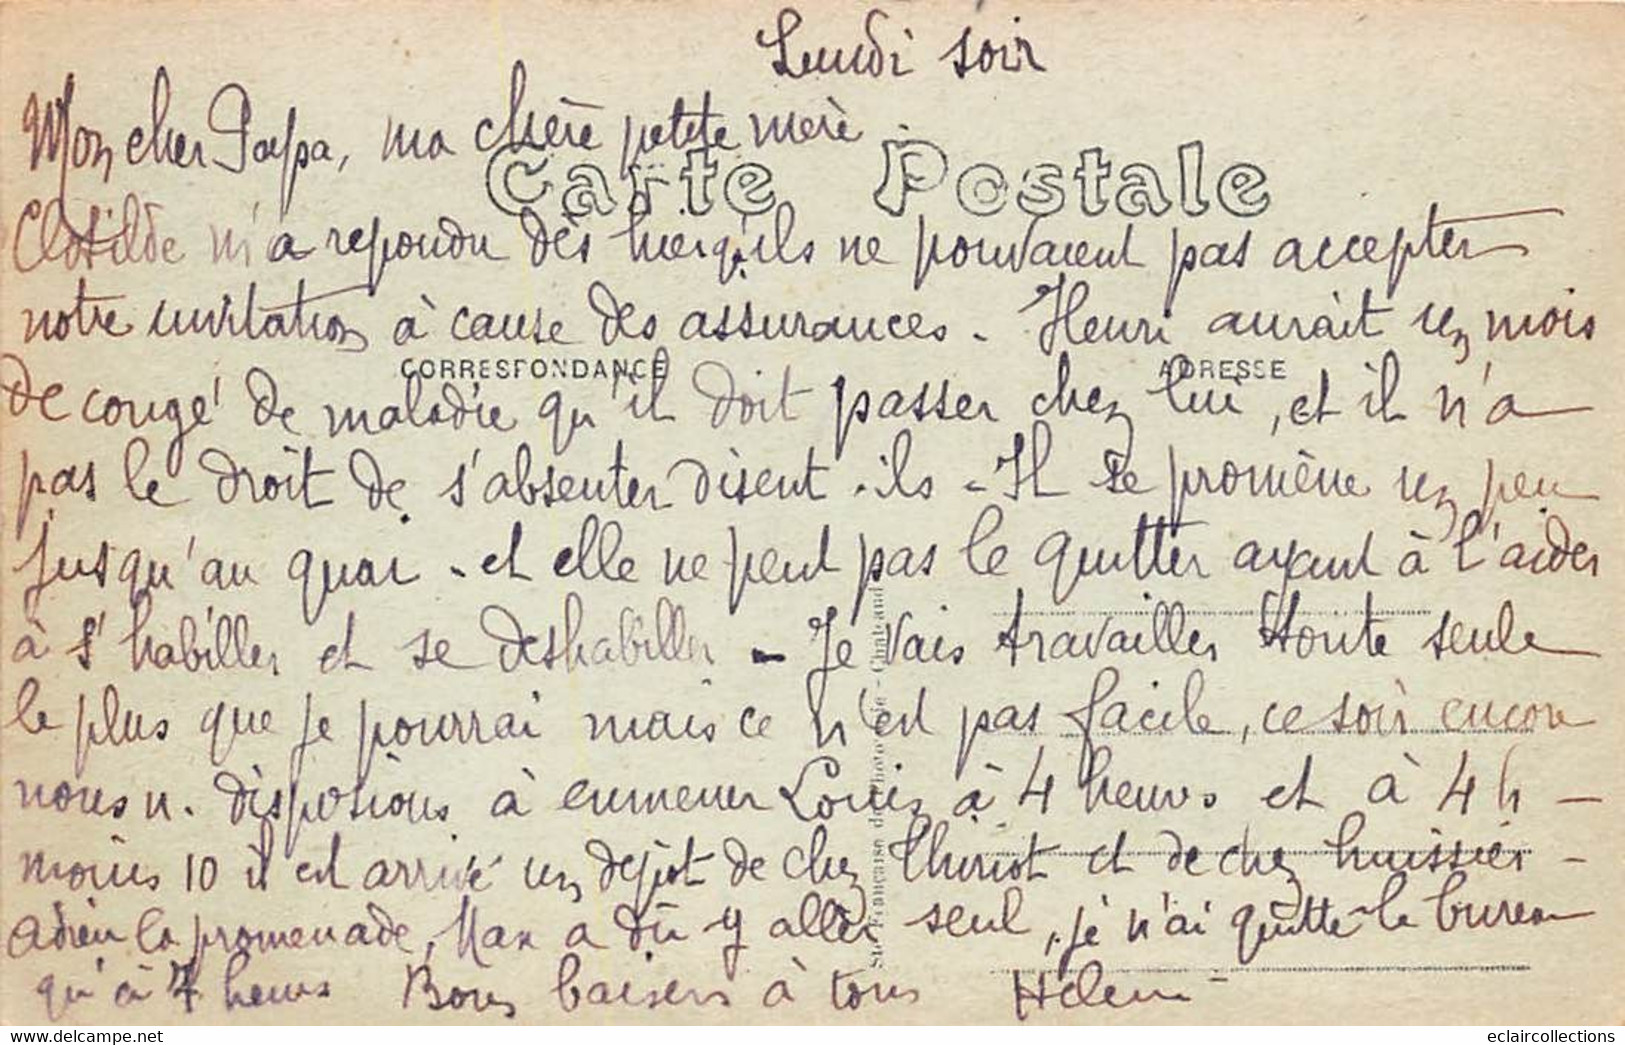 Lundi soir
Mon cher Papa, ma chère petite mère
Carte Postale
Clotilde m'a repondu dès hier qu'ils ne pouvaient pas accepter
notre invitation à cause des assurances - Henri aurait un mois
CORRESPONDANCE ADRESSE
de congé de maladie qu'il doit passer chez lui, et il n'a
pas le droit de s'absenter disent-ils - Il se promène un peu
jusqu'au quai - et elle ne peut pas le quitter ayant à l'aider
à s'habiller et se deshabiller - Je vais travailler toute seule
le plus que je pourrai mais ce n'est pas facile, ce soir encore
nous n. disposions à emmener Louis à 4 heures et à 4 h -
moins 10 il est arrivé un dépot de chez Thiriot et de chez huissier -
adieu la promenade, Max a dû y aller seul, je n'ai quitté le bureau
qu'à 7 heures Bons baisers à tous Hélène
Sté Française de Phototypie - Chateaud
eclaircollections
www.delcampe.net